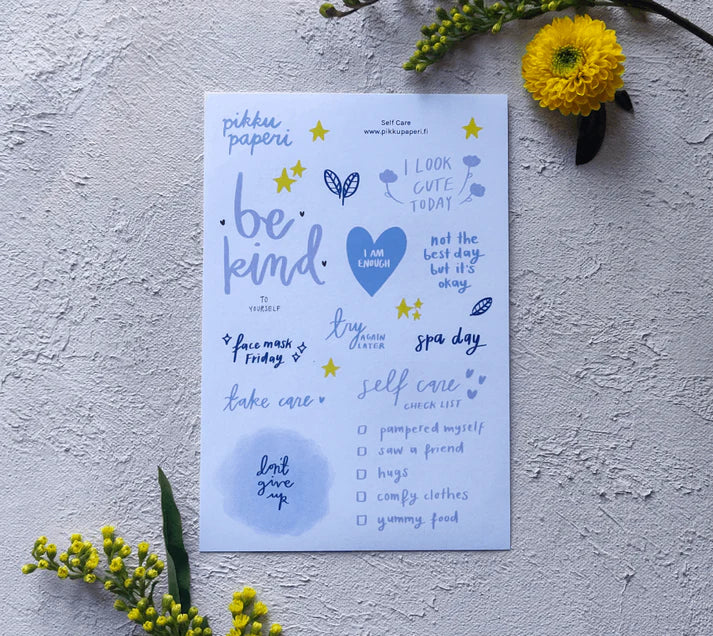 pikku
paperi
Self Care
www.pikkupaperi.fi
I LOOK
CUTE
TODAY
be
kind
TO
YOURSELF
I AM
ENOUGH
not the
best day
but it's
okay
try
AGAIN
LATER
spa day
face mask
Friday
take care
self care
CHECK LIST
pampered myself
saw a friend
hugs
comfy clothes
yummy food
don't
give
up